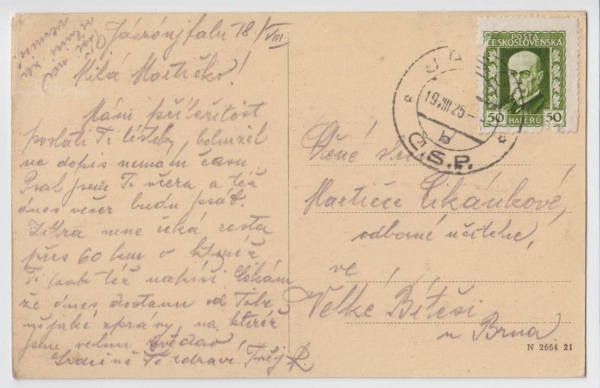 Jászónjfalu 18/VIII
Milá Martičko!
Mám příležitost
poslati Ti lístek, bohužel
na dopis nemám času
Psal jsem Ti včera a též
dnes večer budu psát.
Zítra mne čeká cesta
přes 60 km o které
Ti též napíši. Čekám
že dnes dostanu od Tebe
nějaké zprávy, na které
jsem velmi zvědav!
Srdečně Tě zdraví Tvůj R.
POŠTA
ČESKOSLOVENSKÁ
50 HALÉŘŮ 50
19.VIII.25
b
Č.S.P.
Ctěné
Martičce Cikánkové,
odborné učitelce,
ve
Velké Bíteši
u Brna
N 2664 21